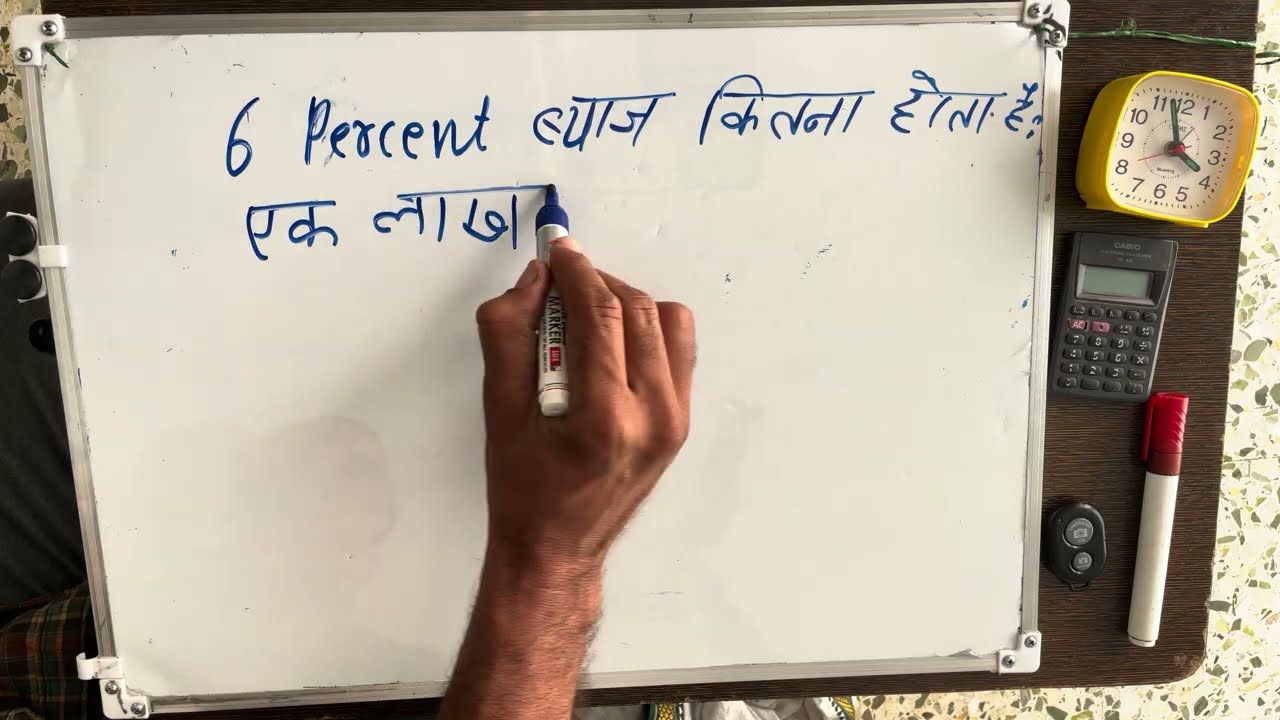 6 Percent ब्याज कितना होता है?
एक लाख
MARKER
CASIO
AC
12
1
2
3
4
5
6
7
8
9
10
11
QUARTZ